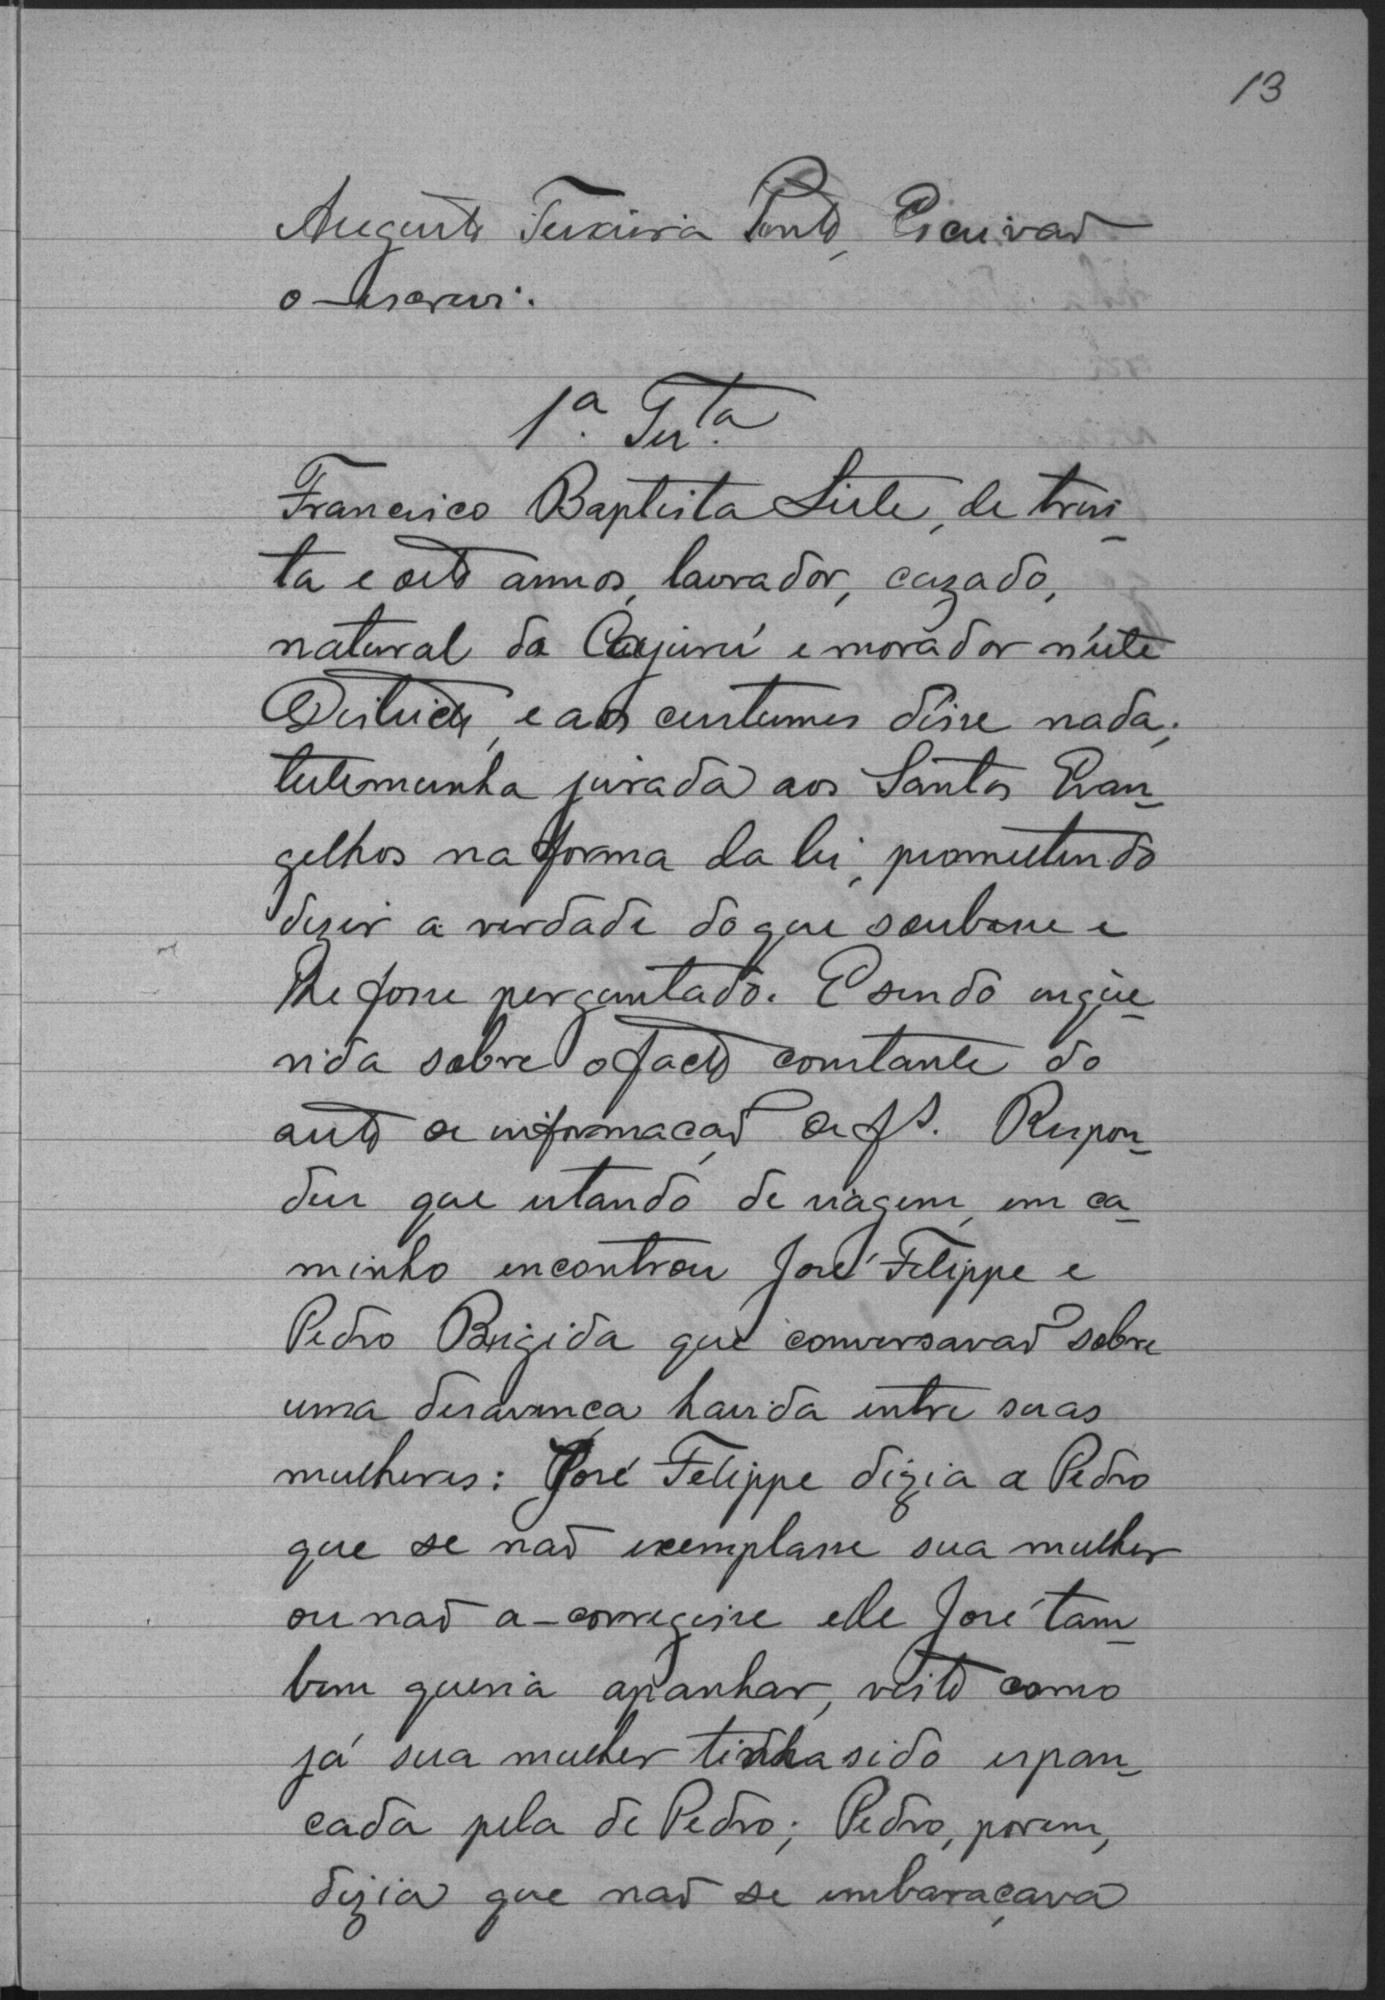 13
Augusto Teixeira Pinto, Escrivaõ
o escrevi.
1ª. Testª.
Francisco Baptista Leite, de trin-
ta e oito annos, lavrador, cazado,
natural do Cajurú e morador n'éste
Districto, e aos custumes disse nada;
testemunha jurada aos Santos Evan-
gelhos na forma da lei, promettendo
dizer a verdade do que soubesse e
lhe fosse perguntado. E sendo inque-
rida sobre o facto constante do
auto de informaçaõ de fs. Respon-
deu que estando de viagem, em ca-
minho encontrou José Felippe e
Pedro Brigida que conversavaõ sobre
uma desavença havida entre suas
mulheres: José Felippe dizia a Pedro
que se naõ exemplasse sua mulher
ou naõ a corregisse elle José tam-
bem queria apanhar, visto como
já sua mulher tinha sido espan-
cada pela de Pedro; Pedro, porem,
dizia que naõ se embaraçava